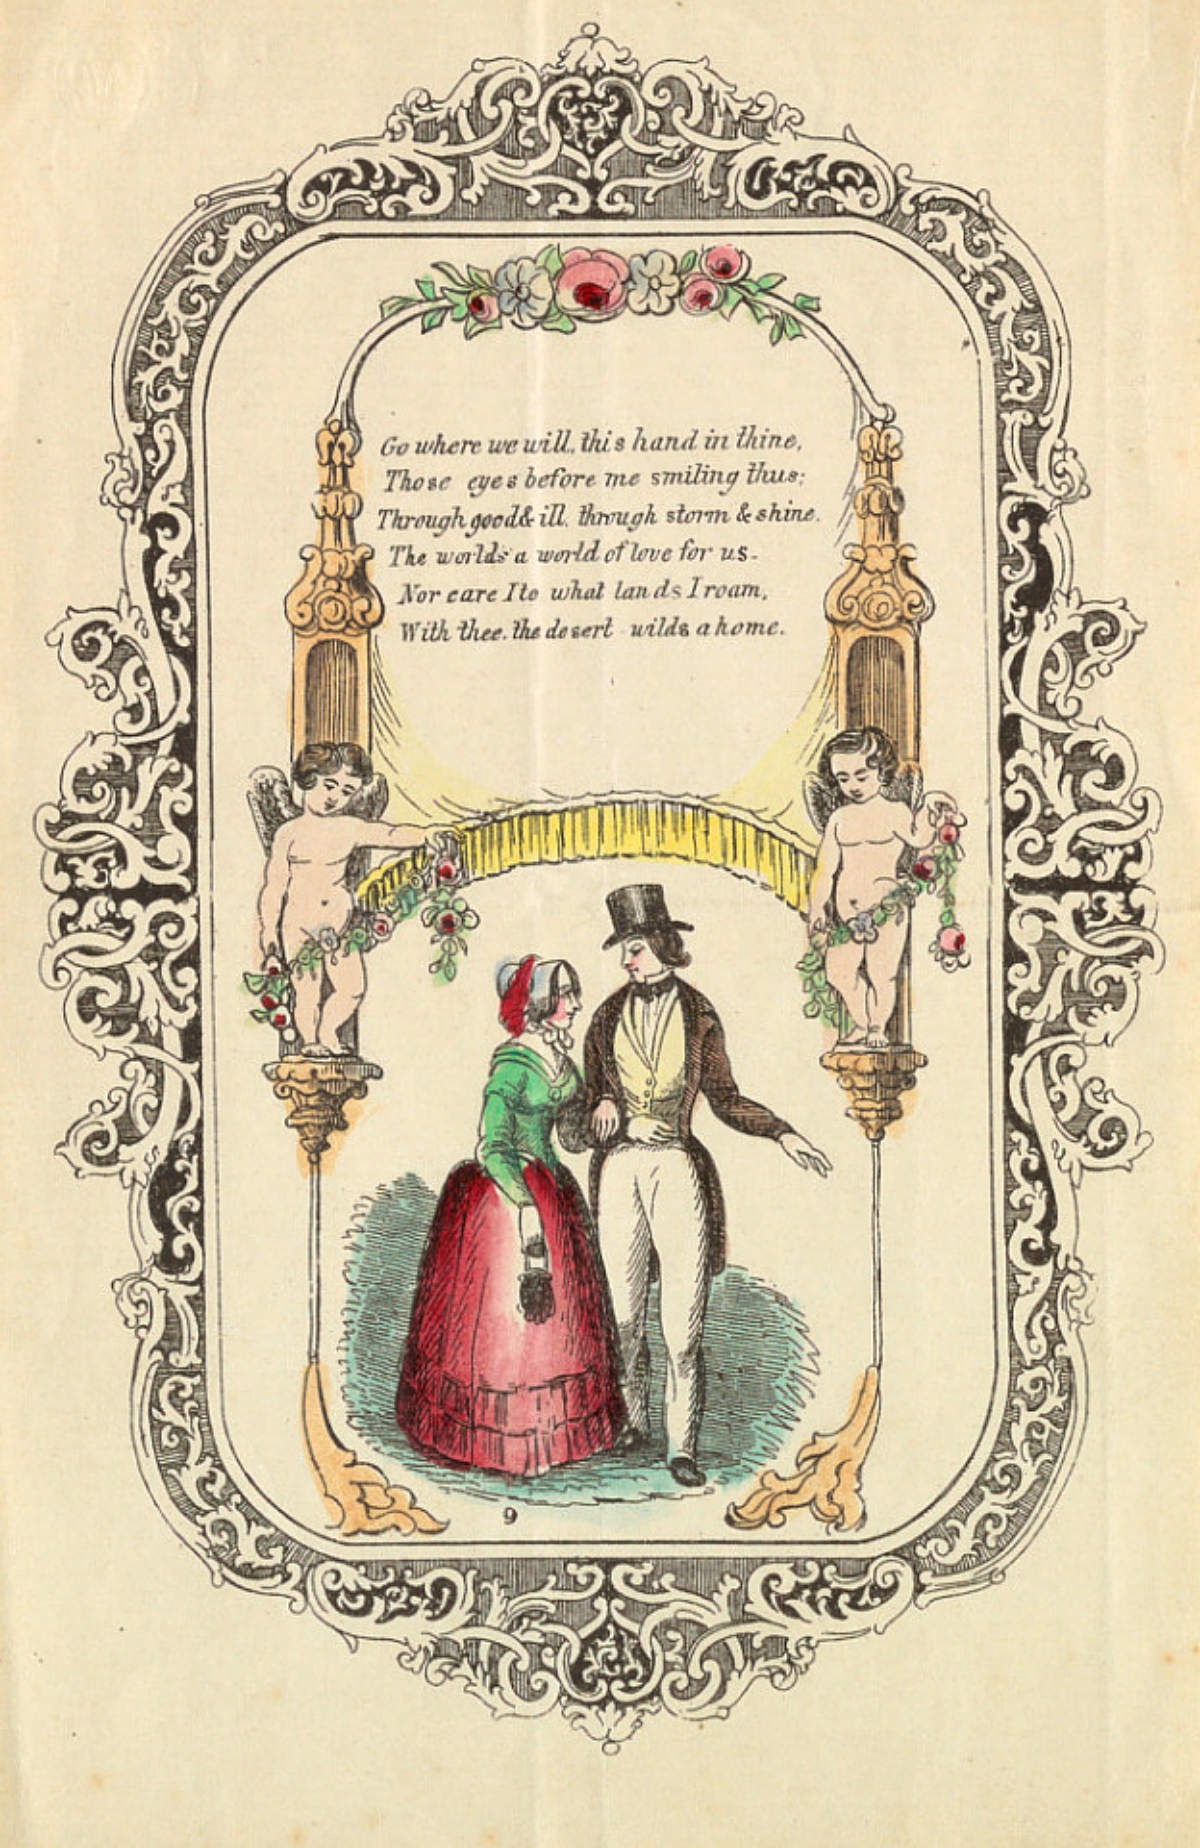 Go where we will, this hand in thine,
Those eyes before me smiling thus;
Through good & ill, through storm & shine.
The world's a world of love for us-
Nor care I to what lands I roam,
With thee, the desert wilds a home.
9